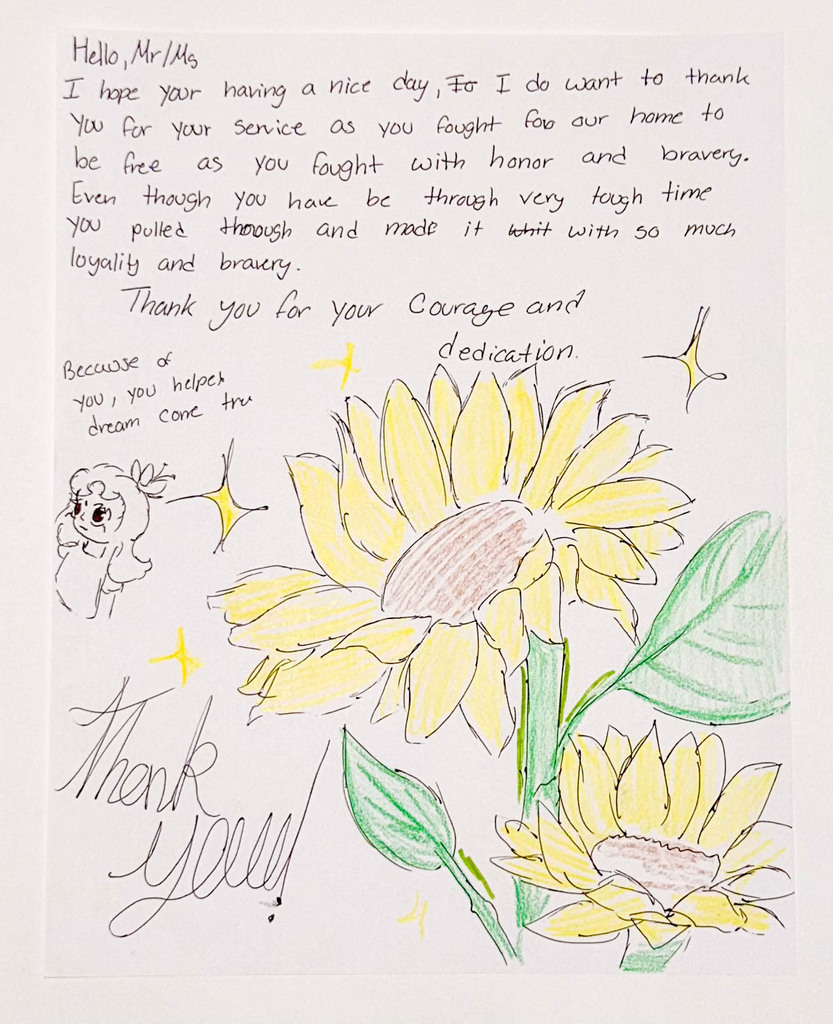 Hello, Mr/Ms
I hope your having a nice day, To I do want to thank
you for your service as you fought for our home to
be free as you fought with honor and bravery.
Even though you have be through very tough time
you pulled through and made it whit with so much
loyality and bravery.
Thank you for your Courage and
dedication.
Because of
you, you helped
dream come tru
Thank
you!